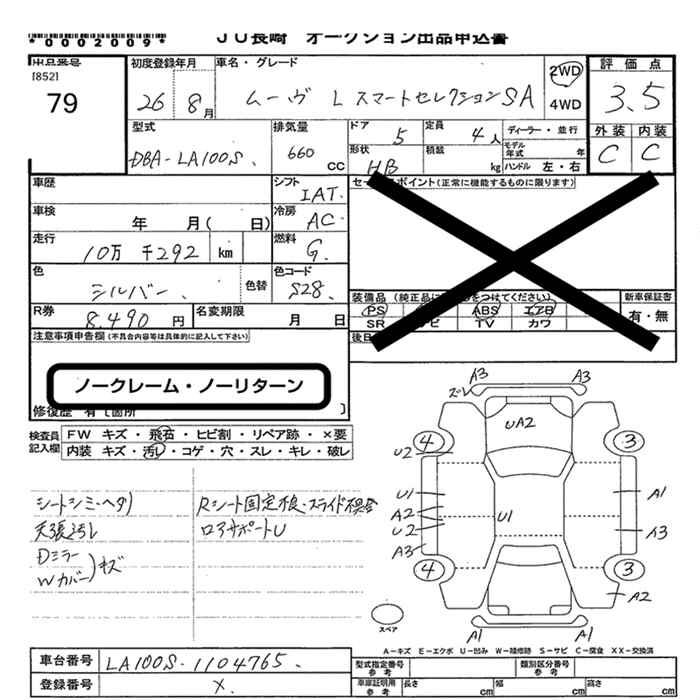 *0002009*
JU長崎 オークション出品申込書
[852]
79
初度登録年月
26 8月
車名・グレード
ムーヴ L スマートセレクションSA
2WD
4WD
評価点
3.5
外装 内装
C C
型式
DBA-LA100S.
排気量
660 CC
ドア
5
定員
4人
ディーラー・並行
モデル年式 年
形状
HB
積載 kg
ハンドル 左・右
車歴
シフト
IAT.
車検
年 月( 日)
冷房
AC.
走行
10万 千292 km
燃料
G.
色
シルバー.
色替
色コード
S28.
R券
8.490 円
名変期限
月 日
注意事項申告欄(不具合内容等は具体的に記入して下さい)
ノークレーム・ノーリターン
修復歴 有
(正常に機能するものに限ります)
装備品
PS ABS エアB
SR TV カワ
新車保証書
有・無
検査員記入欄
FW キズ・飛石・ヒビ割・リペア跡・×要
内装 キズ・汚レ・コゲ・穴・スレ・キレ・破レ
シートシミ・ヘタリ
天張汚し
Dミラー
Wカバー)キズ
Rシート固定不良・スライド
ロアサポートU
A3 A3
ズレ
UA2
4 3
U2
U1 A1
A2
U2 U1 A3
A3
4 3
A2
スペア
A1 A1
A-キズ E-エクボ U-凹み W-補修跡 S-サビ C-腐食 XX-交換済
車台番号 LA100S-1104765.
登録番号 X.
型式指定番号 参考
類別区分番号 参考
車庫証明用 参考
長さ cm 幅 cm 高さ cm